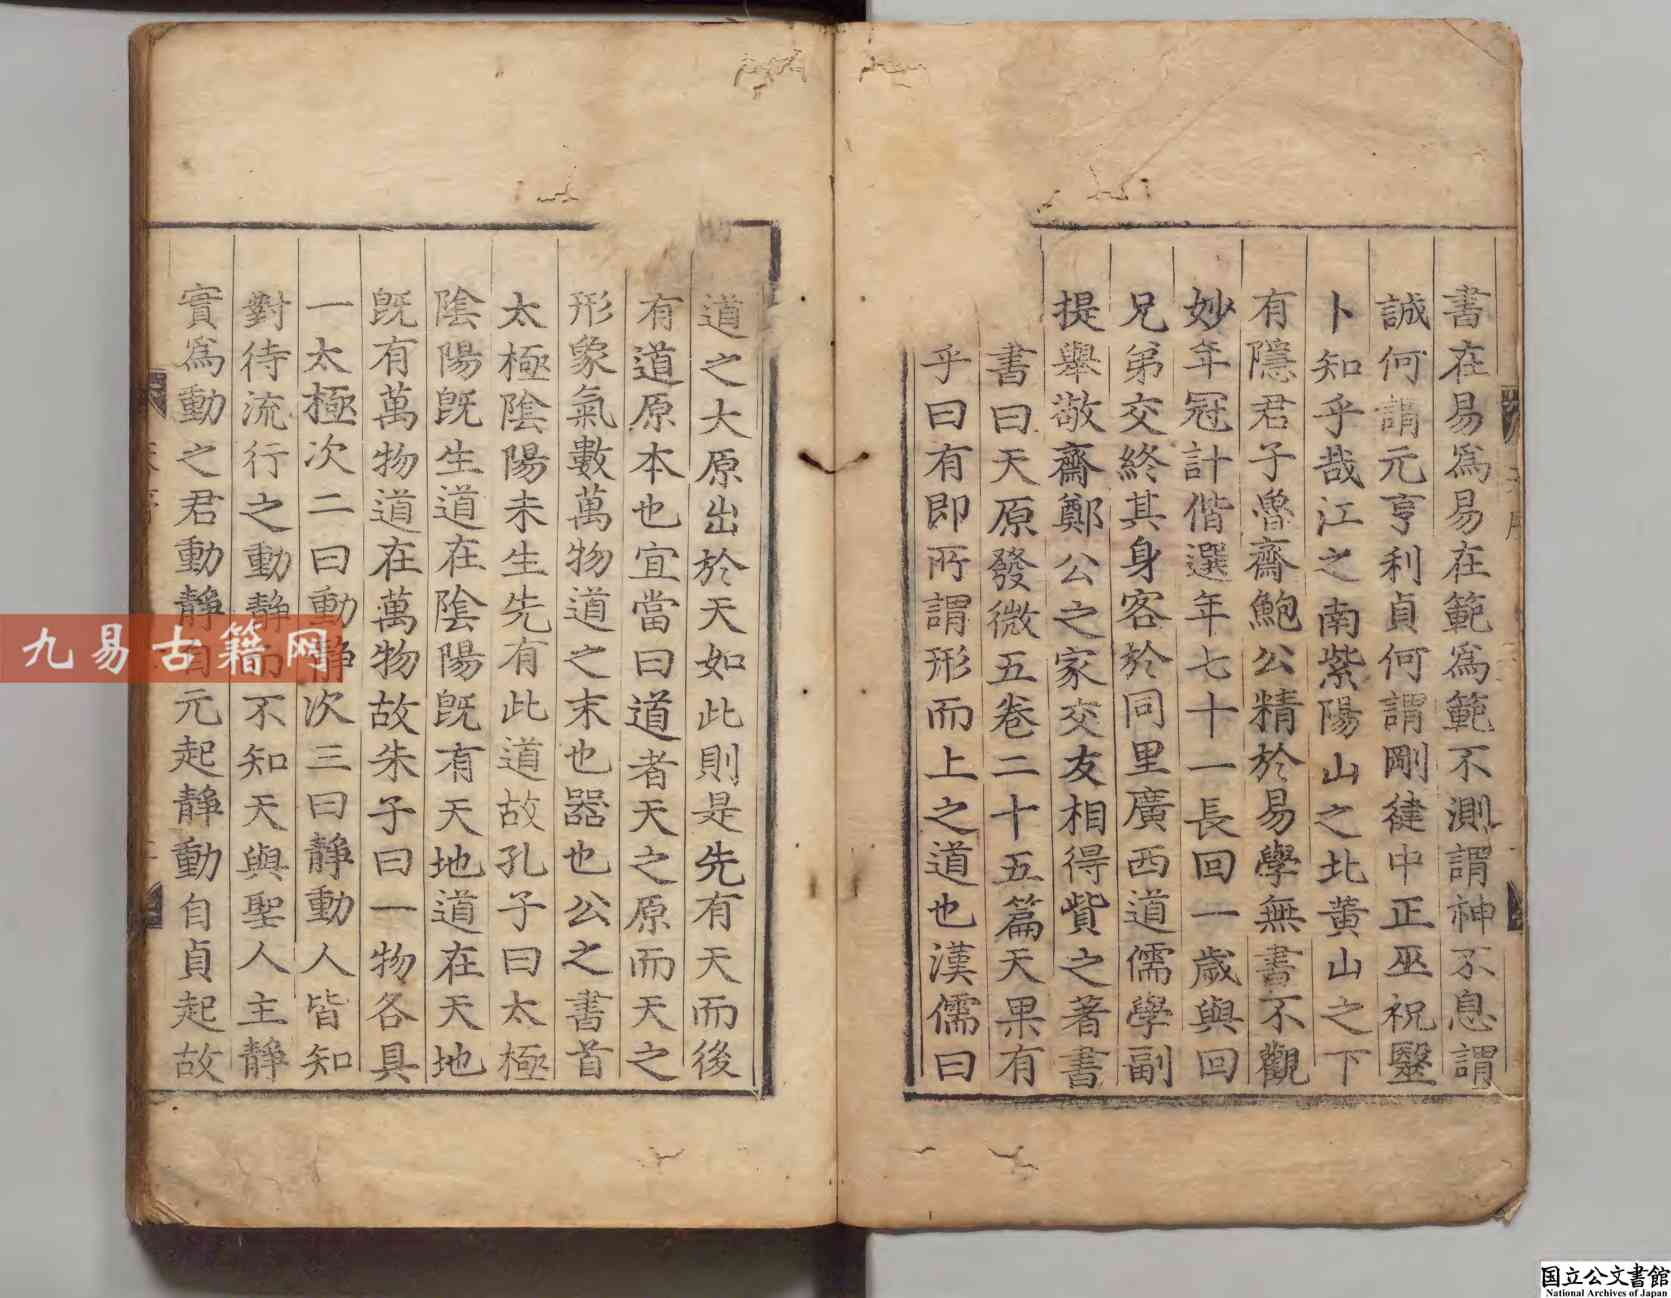 書在易爲易在範爲範不測謂神不息謂
誠何謂元亨利貞何謂剛健中正巫祝毉
卜知乎哉江之南紫陽山之北黄山之下
有隱君子魯齋鮑公精於易學無書不觀
妙年冠計偕選年七十一長回一歲與回
兄弟交終其身客於同里廣西道儒學副
提舉敬齋鄭公之家交友相得貲之著書
書曰天原發微五卷二十五篇天果有
乎曰有即所謂形而上之道也漢儒曰
道之大原出於天如此則是先有天而後
有道原本也宜當曰道者天之原而天之
形象氣數萬物道之末也器也公之書首
太極陰陽未生先有此道故孔子曰太極
陰陽旣生道在陰陽旣有天地道在天地
旣有萬物道在萬物故朱子曰一物各具
一太極次二曰動靜次三曰靜動人皆知
對待流行之動靜而不知天與聖人主靜
實爲動之君動靜自元起靜動自貞起故
九易古籍网
国立公文書館
National Archives of Japan